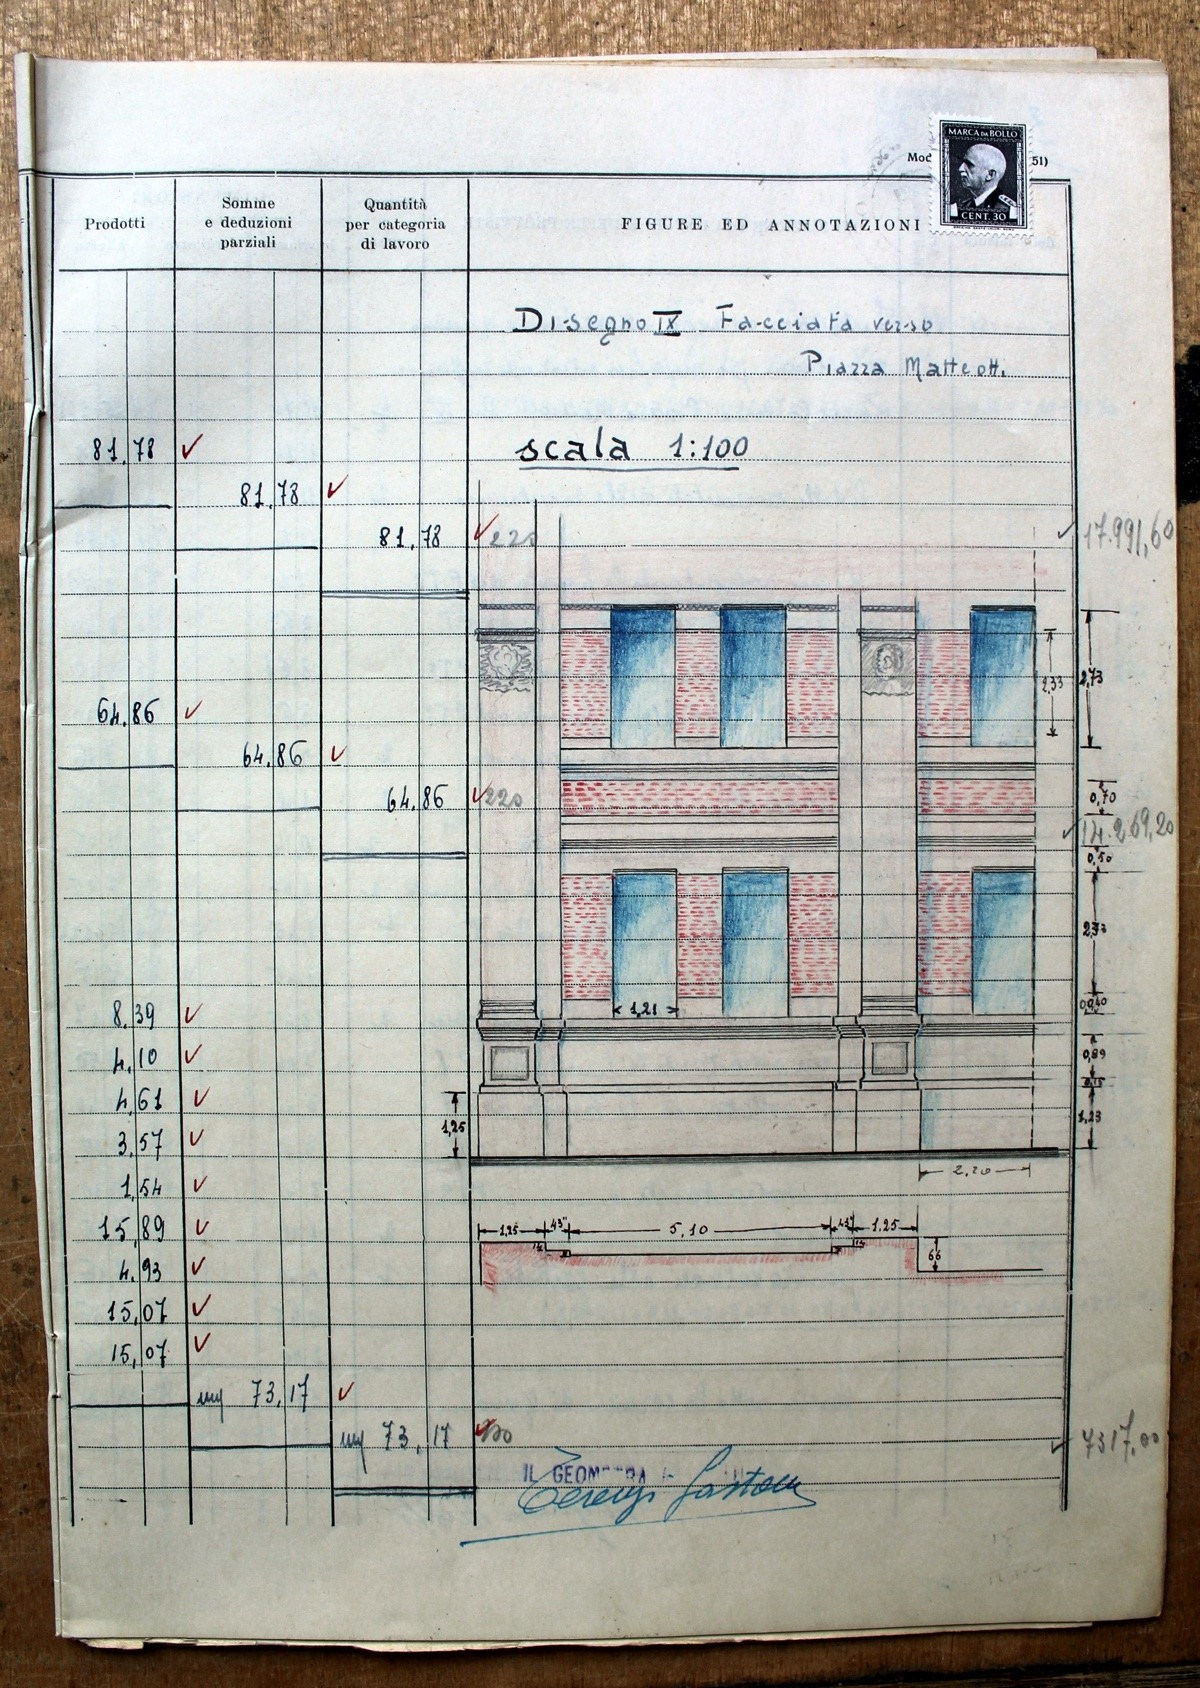 MARCA DA BOLLO
CENT. 30
Mod
51)
Prodotti
Somme
e deduzioni
parziali
Quantità
per categoria
di lavoro
FIGURE ED ANNOTAZIONI
Disegno IX Facciata verso
Piazza Matteotti
81,78
scala 1:100
81,78
81,78
220
17.991,60
2,33
2,73
64,86
64,86
64,86
220
0,70
14.269,20
0,50
2,33
8,39
1,21
0,40
4,10
0,89
0,15
4,61
1,25
1,23
3,57
2,20
1,54
15,89
1,25
43
5,10
43
1.25
66
4,93
15,07
15,07
73,17
73,17
100
7317,00
IL GEOMETRA